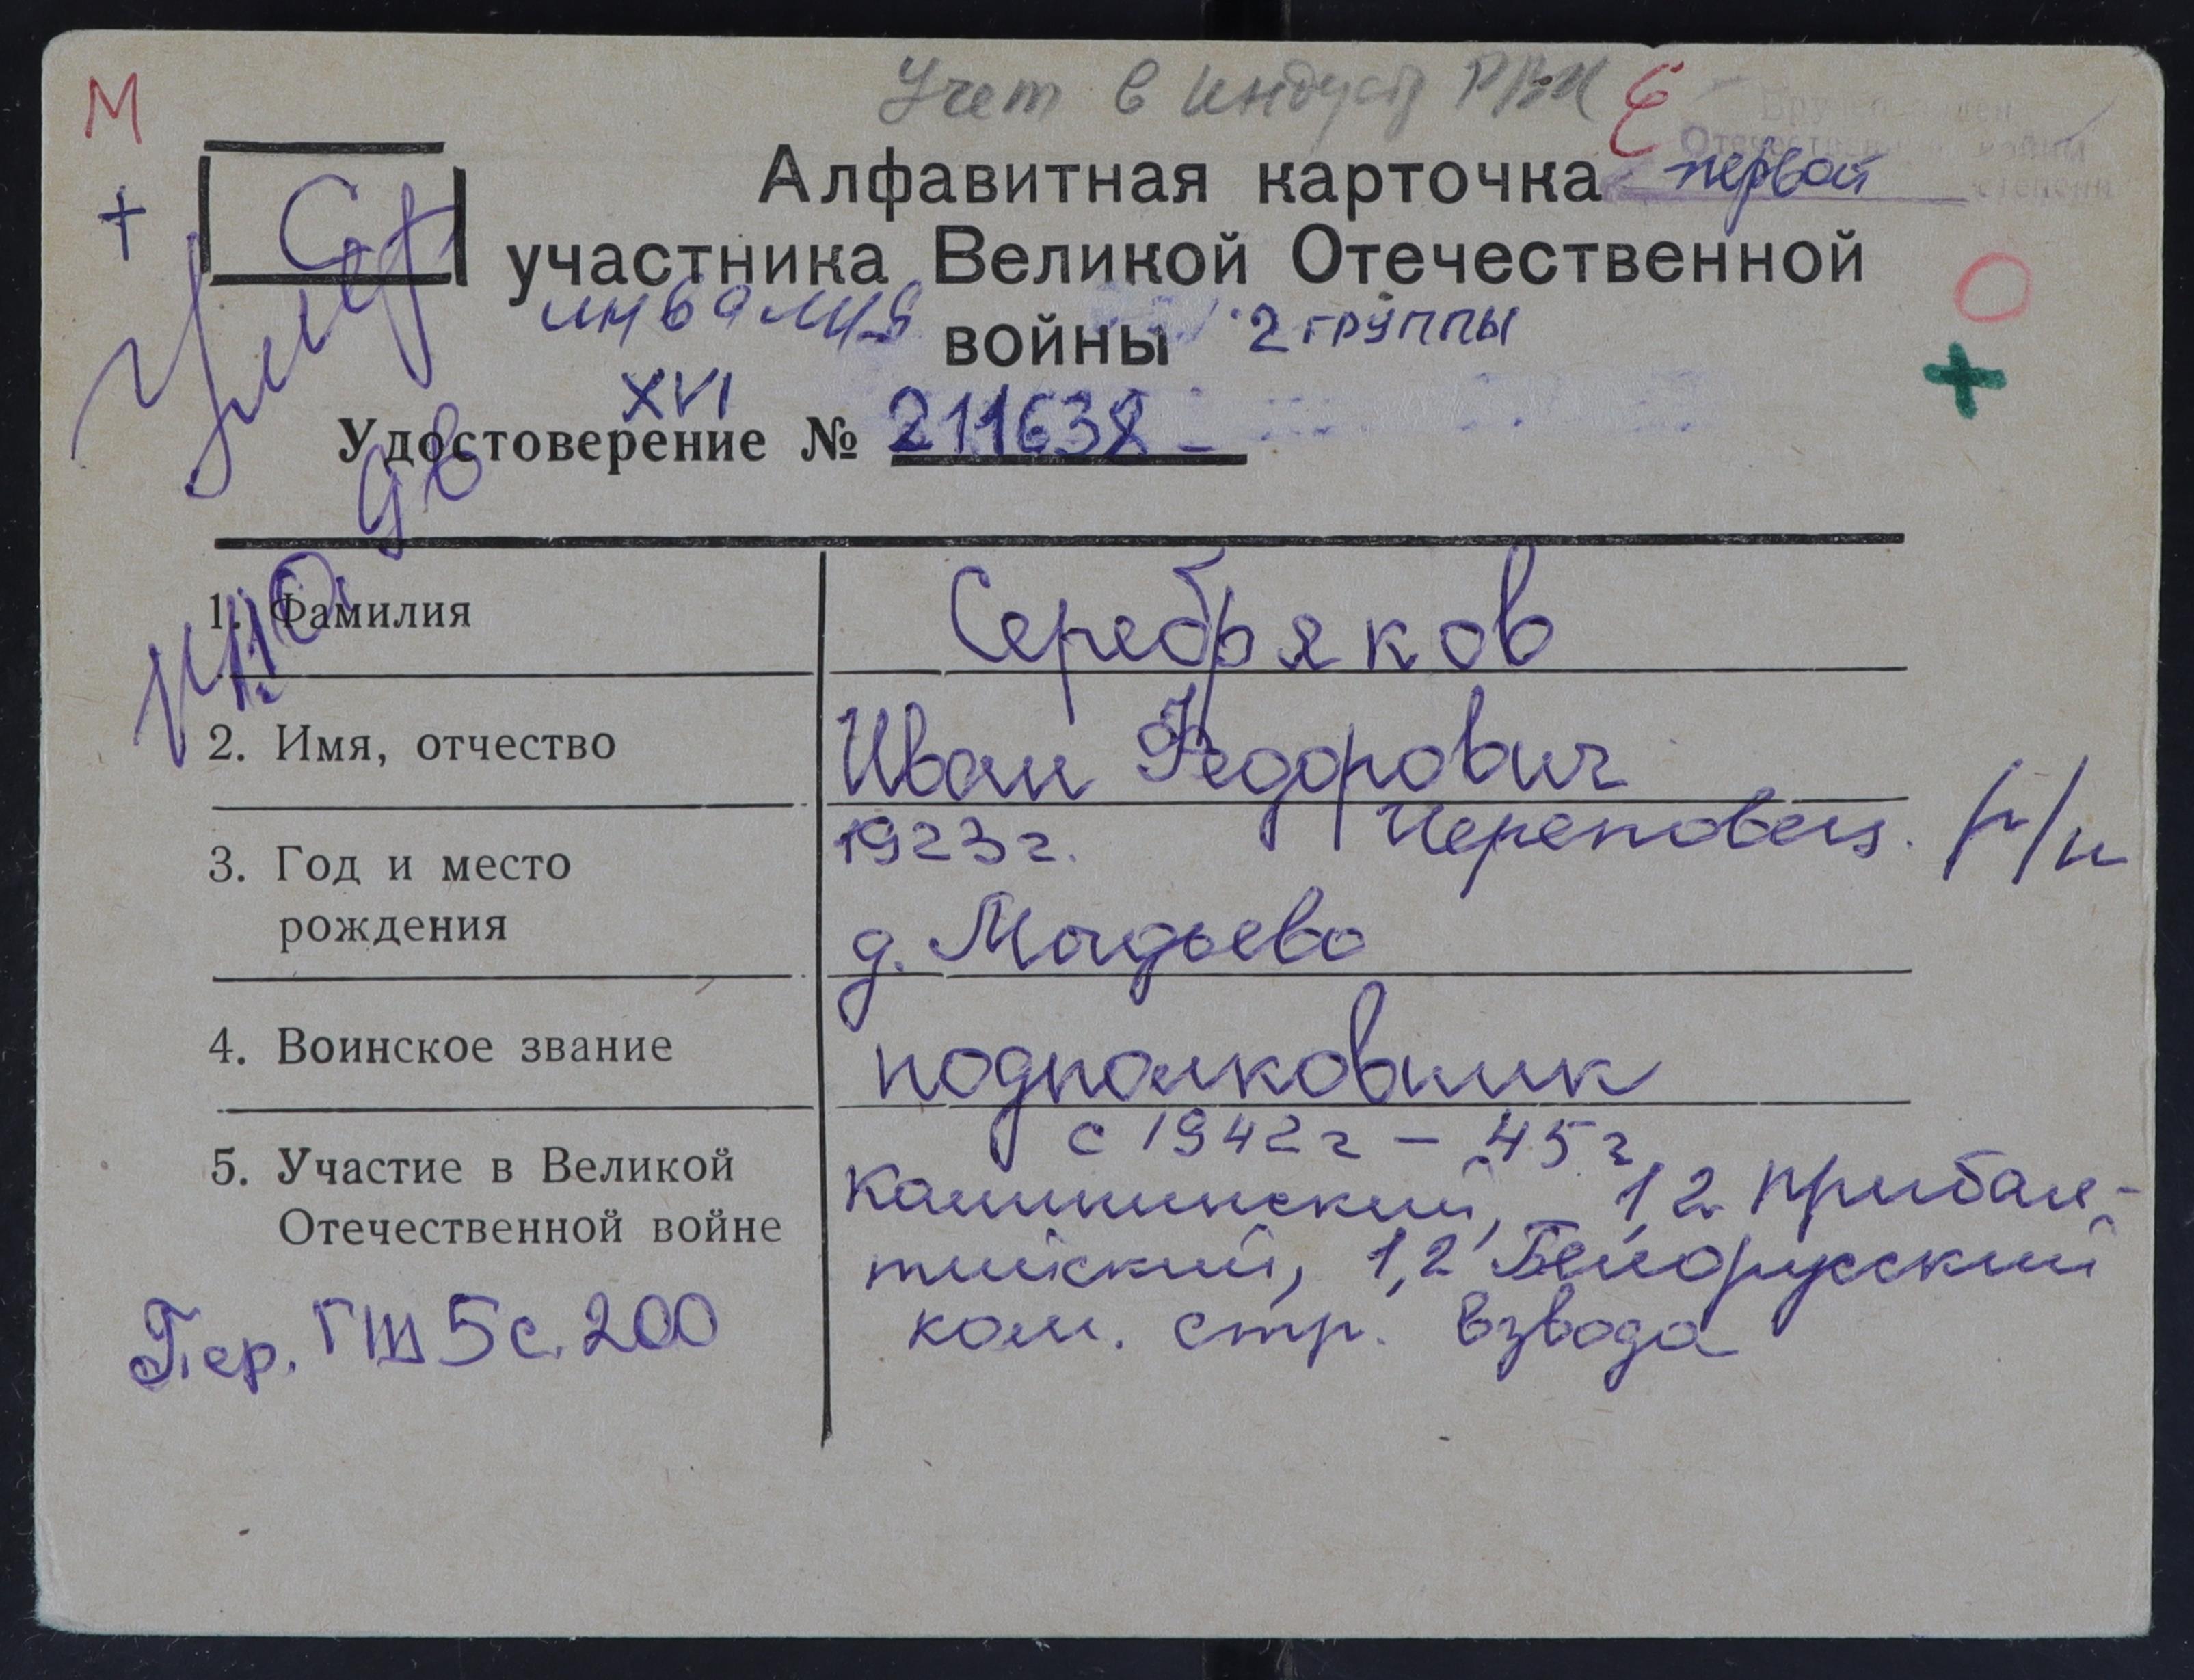 М
Учет в Индустр РВК
Е
Отечественной войны
первой степени
+
С
Алфавитная карточка
участника Великой Отечественной
войны
инвалид 2 группы
Умер
XVI
Удостоверение № 211638
98
1. Фамилия Серебряков
2. Имя, отчество Иван Федорович
3. Год и место рождения 1923г. Череповец. р/н
д. Мадьево
4. Воинское звание подполковник
5. Участие в Великой Отечественной войне с 1942г – 45г
Калининский, 1,2 Прибал-
тийский, 1,2 Белорусский
ком. стр. взвода
Пер. ГШ 5 с. 200